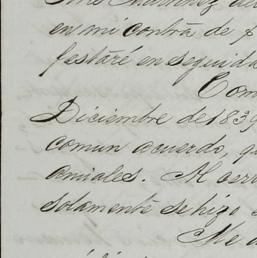 en mi contra, de
festaré en seguida
Com
Diciembre de 1839
comun acuerdo, qu
amiales. M
solamente se hizo
Me a